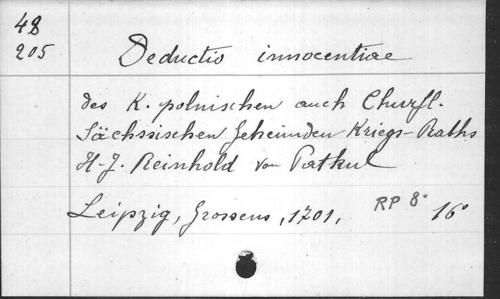 48
205
Deductio innocentiae
des K. polnischen auch Churfl.
Sächssischen Geheimden Kriegs-Raths
H. J. Reinhold von Patkul
Leipzig, Grossens, 1701, RP 8° 16°